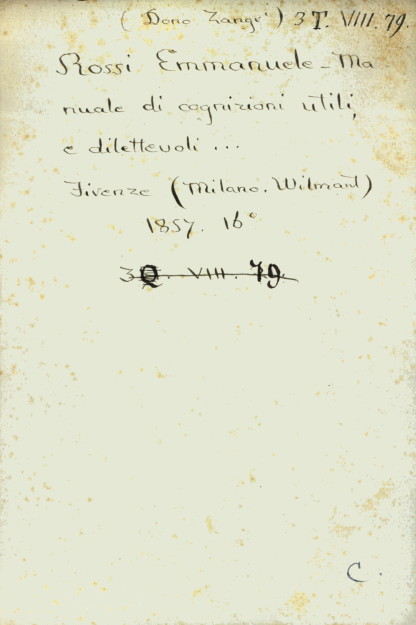 (Dono Zangri) 3T. VIII. 79.
Rossi Emmanuele - Ma
nuale di cognizioni utili,
e dilettevoli ...
Firenze (Milano. Wilmant)
1857. 16°
3Q. VIII. 79.
C.